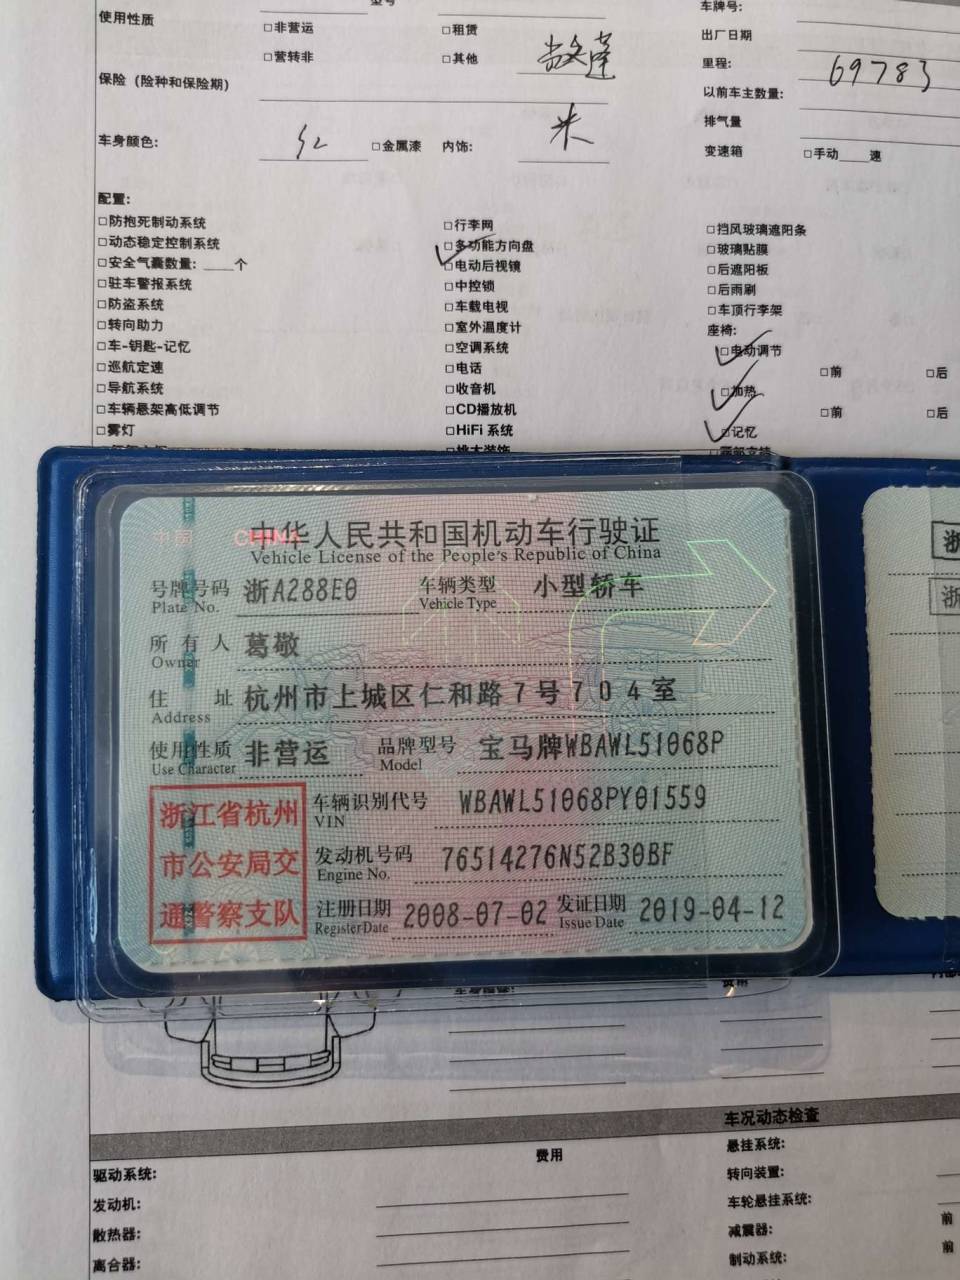 型号
使用性质
□非营运
□租赁
车牌号:
出厂日期
□营转非
□其他
敞篷
里程:
69783
保险（险种和保险期）
以前车主数量:
排气量
车身颜色:
红
□金属漆
内饰:
米
变速箱
□手动____速
配置:
□防抱死制动系统
□行李网
□挡风玻璃遮阳条
□动态稳定控制系统
□多功能方向盘
□玻璃贴膜
□安全气囊数量: ____个
□电动后视镜
□后遮阳板
□驻车警报系统
□中控锁
□后雨刷
□防盗系统
□车载电视
□车顶行李架
□转向助力
□室外温度计
座椅:
□车-钥匙-记忆
□空调系统
□电动调节
□巡航定速
□电话
□前
□后
□导航系统
□收音机
□加热
□车辆悬架高低调节
□CD播放机
□前
□后
□雾灯
□HiFi 系统
□记忆
中国 CHINA
中华人民共和国机动车行驶证
Vehicle License of the People's Republic of China
号牌号码 浙A288E0 车辆类型 小型轿车
Plate No. Vehicle Type
所有人 葛敬
Owner
住址 杭州市上城区仁和路7号704室
Address
使用性质 非营运 品牌型号 宝马牌WBAWL51068P
Use Character Model
浙江省杭州
市公安局交
通警察支队
车辆识别代号 WBAWL51068PY01559
VIN
发动机号码 76514276N52B30BF
Engine No.
注册日期 2008-07-02 发证日期 2019-04-12
Register Date Issue Date
浙
浙
费用
车况动态检查
费用
悬挂系统:
驱动系统:
转向装置:
发动机:
车轮悬挂系统:
前
散热器:
减震器:
前
离合器:
制动系统: